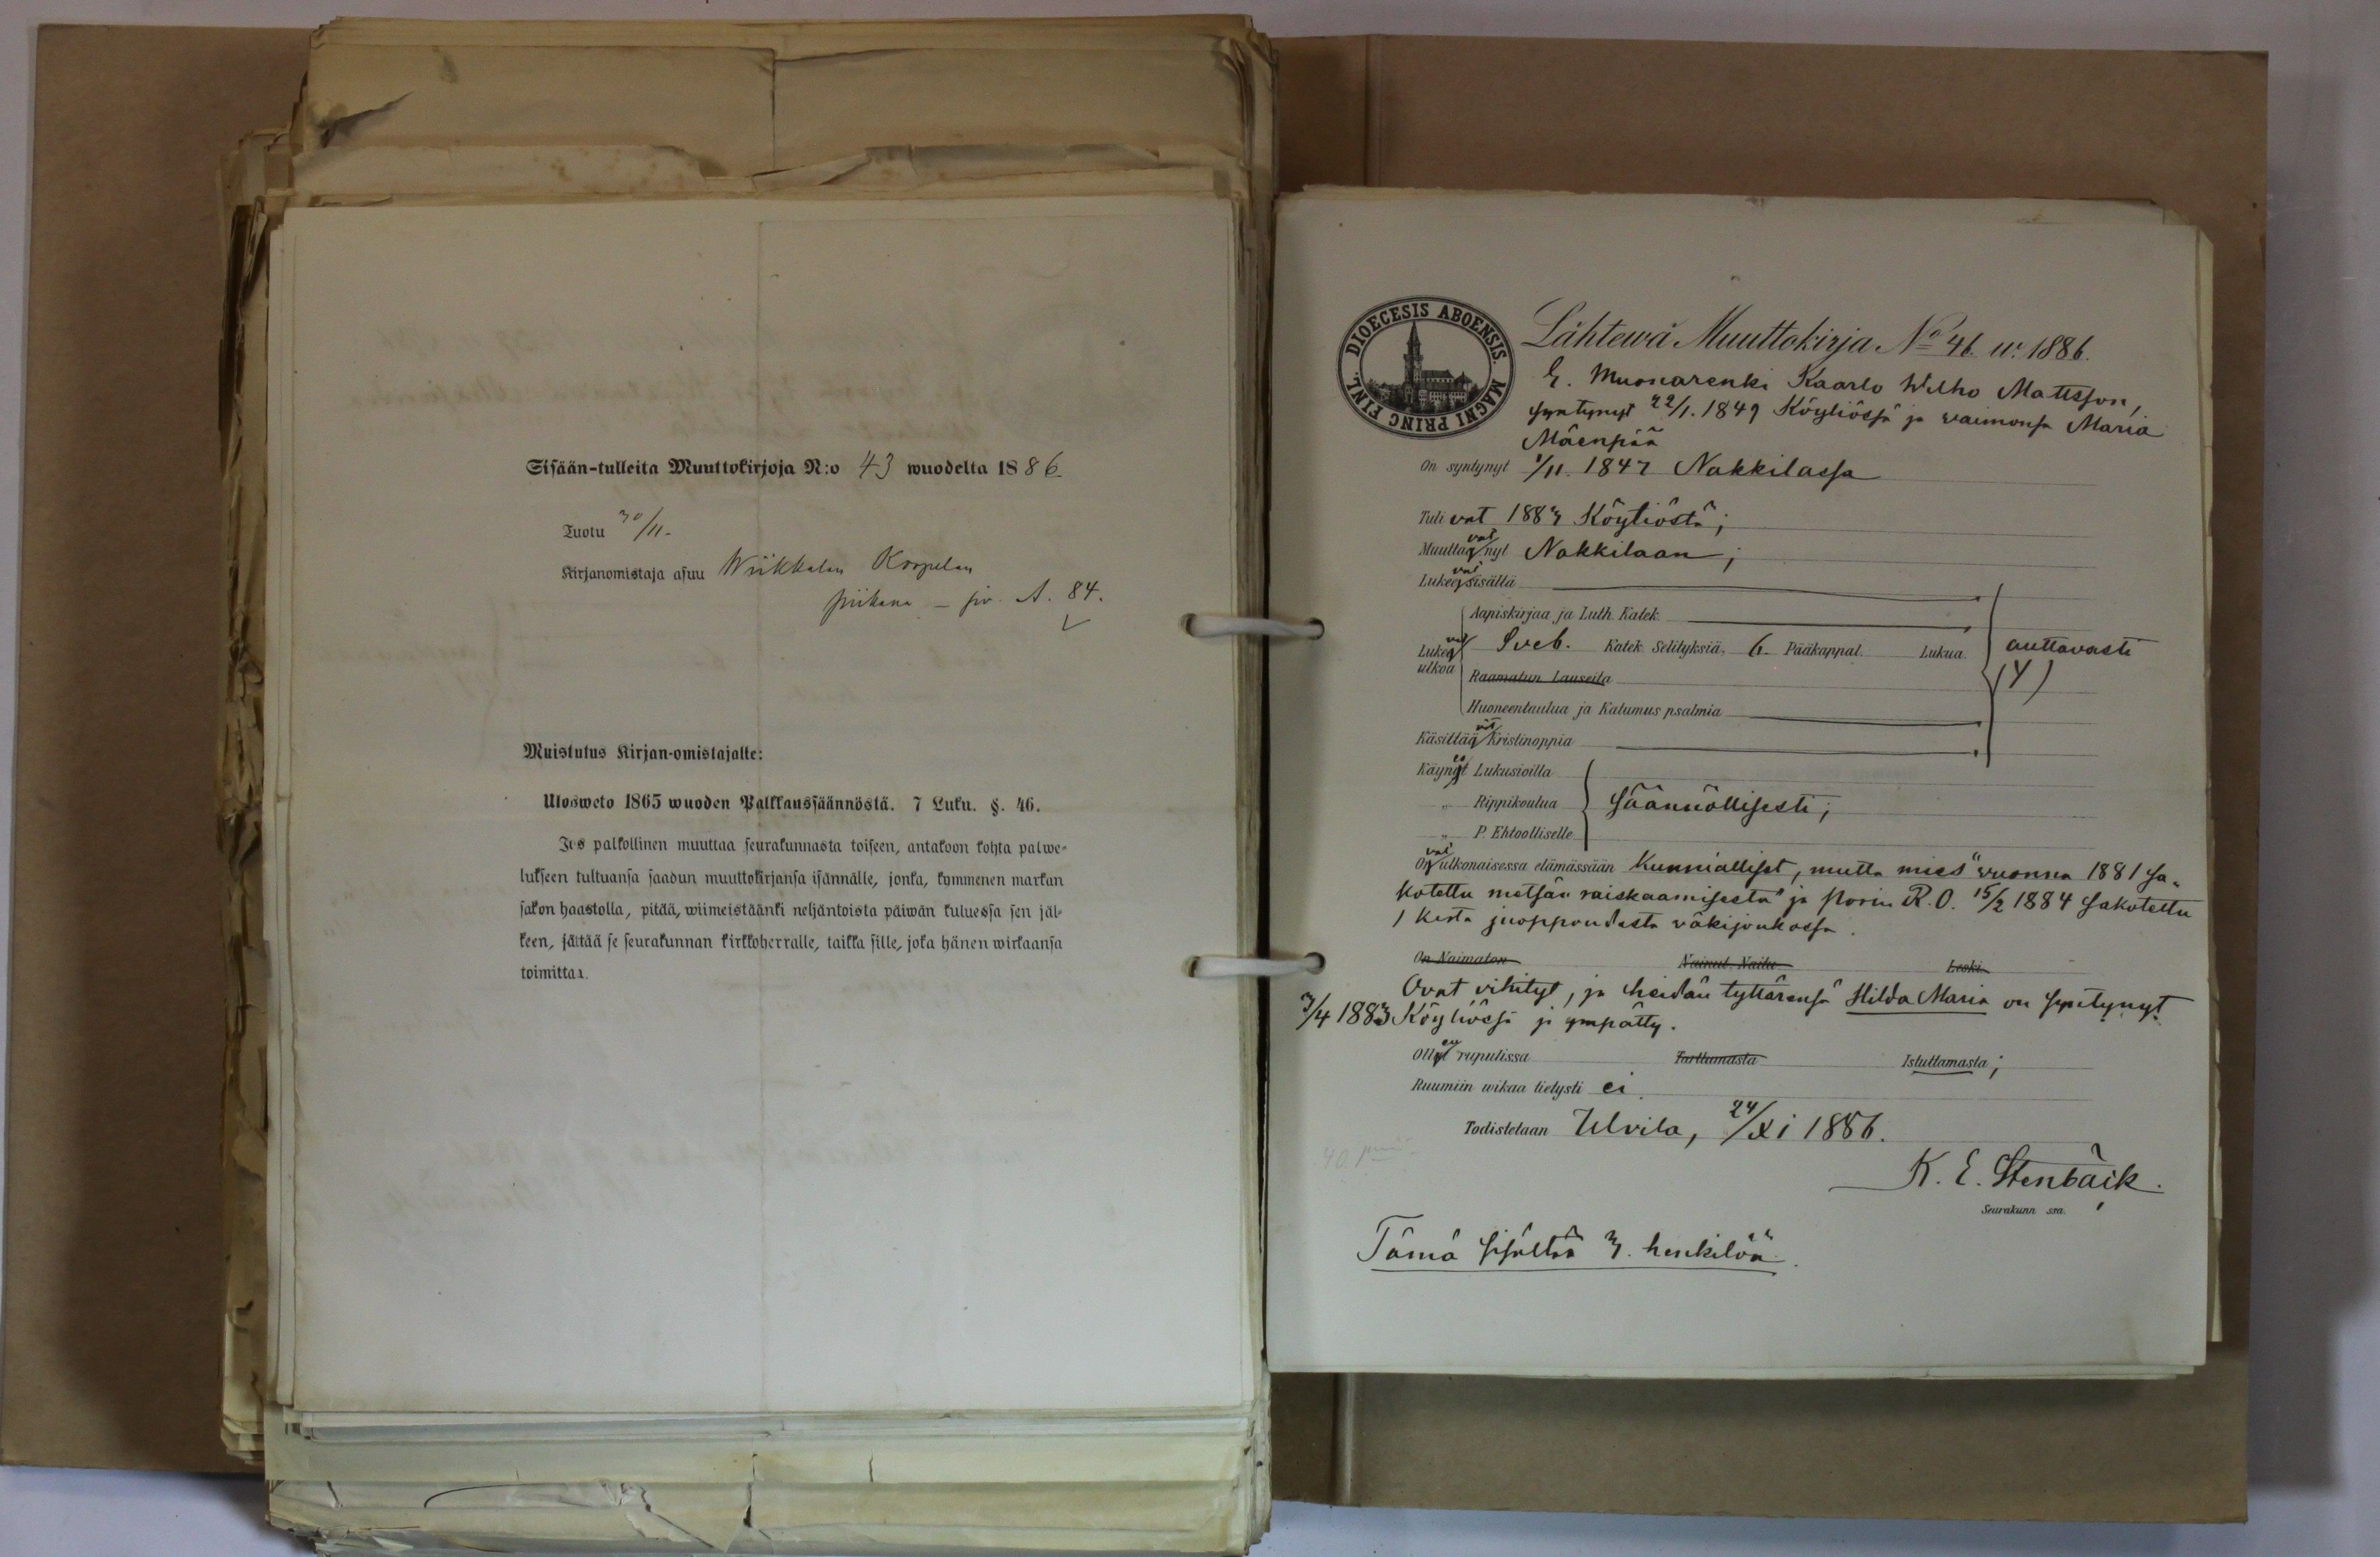 Sisään-tulleita Muuttokirjoja N:o 43 wuodelta 1886
Tuotu 30/11.
Kirjanomistaja asuu Wiikkalan Korpelan
piikana – siv. A. 84.
Muistutus Kirjan-omistajalle:
Ulosweto 1865 wuoden Palkkaussäännöstä. 7 Luku. §. 46.
Jos palkollinen muuttaa seurakunnasta toiseen, antakoon kohta palwe-
lukseen tultuansa saadun muuttokirjansa isännälle, jonka, kymmenen markan
sakon haastolla, pitää, wiimeistäänki neljäntoista päiwän kuluessa sen jäl-
keen, jättää se seurakunnan kirkkoherralle, taikka sille, joka hänen wirkaansa
toimittaa.
DIOECESIS ABOENSIS. MAGNI PRINC FINL.
Lähtewä Muuttokirja No 46 w. 1886.
E. Muonarenki Kaarlo Wilho Mattsson,
syntynyt 22/1. 1849 Köyliössä ja vaimonsa Maria
Mäenpää
On syntynyt 1/11. 1847 Nakkilassa
Tulivat 1883 Köyliöstä;
Muuttavat nyt Nakkilaan;
Lukevat sisältä
Aapiskirjaa ja Luth. Katek.
Lukevat ulkoa Sveb. Katek Selityksiä, 6. Pääkappal. Lukua. auttavasti
Raamatun Lauseita (4)
Huoneentaulua ja Katumus psalmia
Käsittävät Kristinoppia
Käyneet Lukusioilla
„ Rippikoulua säännöllisesti;
„ P. Ehtoolliselle
Ovat ulkonaisessa elämässään kunnialliset, mutta mies "vuonna 1881 sa-
kotettu metsän raiskaamisesta" ja Porin R.O. 15/2 1884 sakotettu
1 kerta juoppoudesta väkijoukossa.
On Naimaton Nainut Naitu Leski
Ovat vihityt, ja heidän tyttärensä Hilda Maria on syntynyt
3/4 1883 Köyliössä ja ympätty.
Olleet rupulissa Tarttumasta Istuttamasta;
Ruumiin wikaa tietysti ei
Todistetaan Ulvila, 24/XI 1886.
K. E. Stenbäck.
Seurakunn ssa.
Tämä sisältää 3. henkilöä.